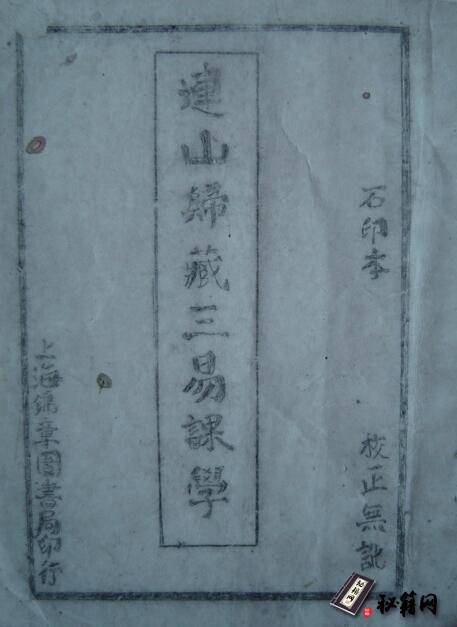 石印本
校正無訛
連山歸藏三易課學
上海錦章圖書局印行
秘籍网